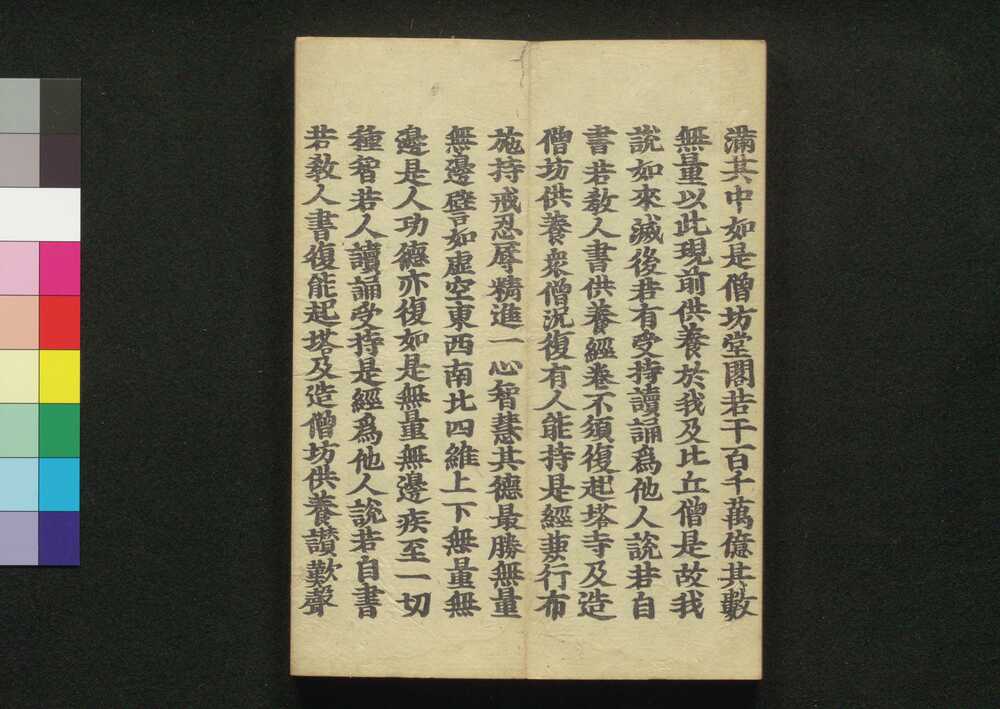 滿其中如是僧坊堂閣若干百千萬億其數
無量以此現前供養於我及比丘僧是故我
説如來滅後若有受持讀誦爲他人説若自
書若敎人書供養經卷不須復起塔寺及造
僧坊供養衆僧況復有人能持是經兼行布
施持戒忍辱精進一心智慧其德最勝無量
無邊譬如虛空東西南北四維上下無量無
邊是人功德亦復如是無量無邊疾至一切
種智若人讀誦受持是經爲他人説若自書
若敎人書復能起塔及造僧坊供養讃歎聲